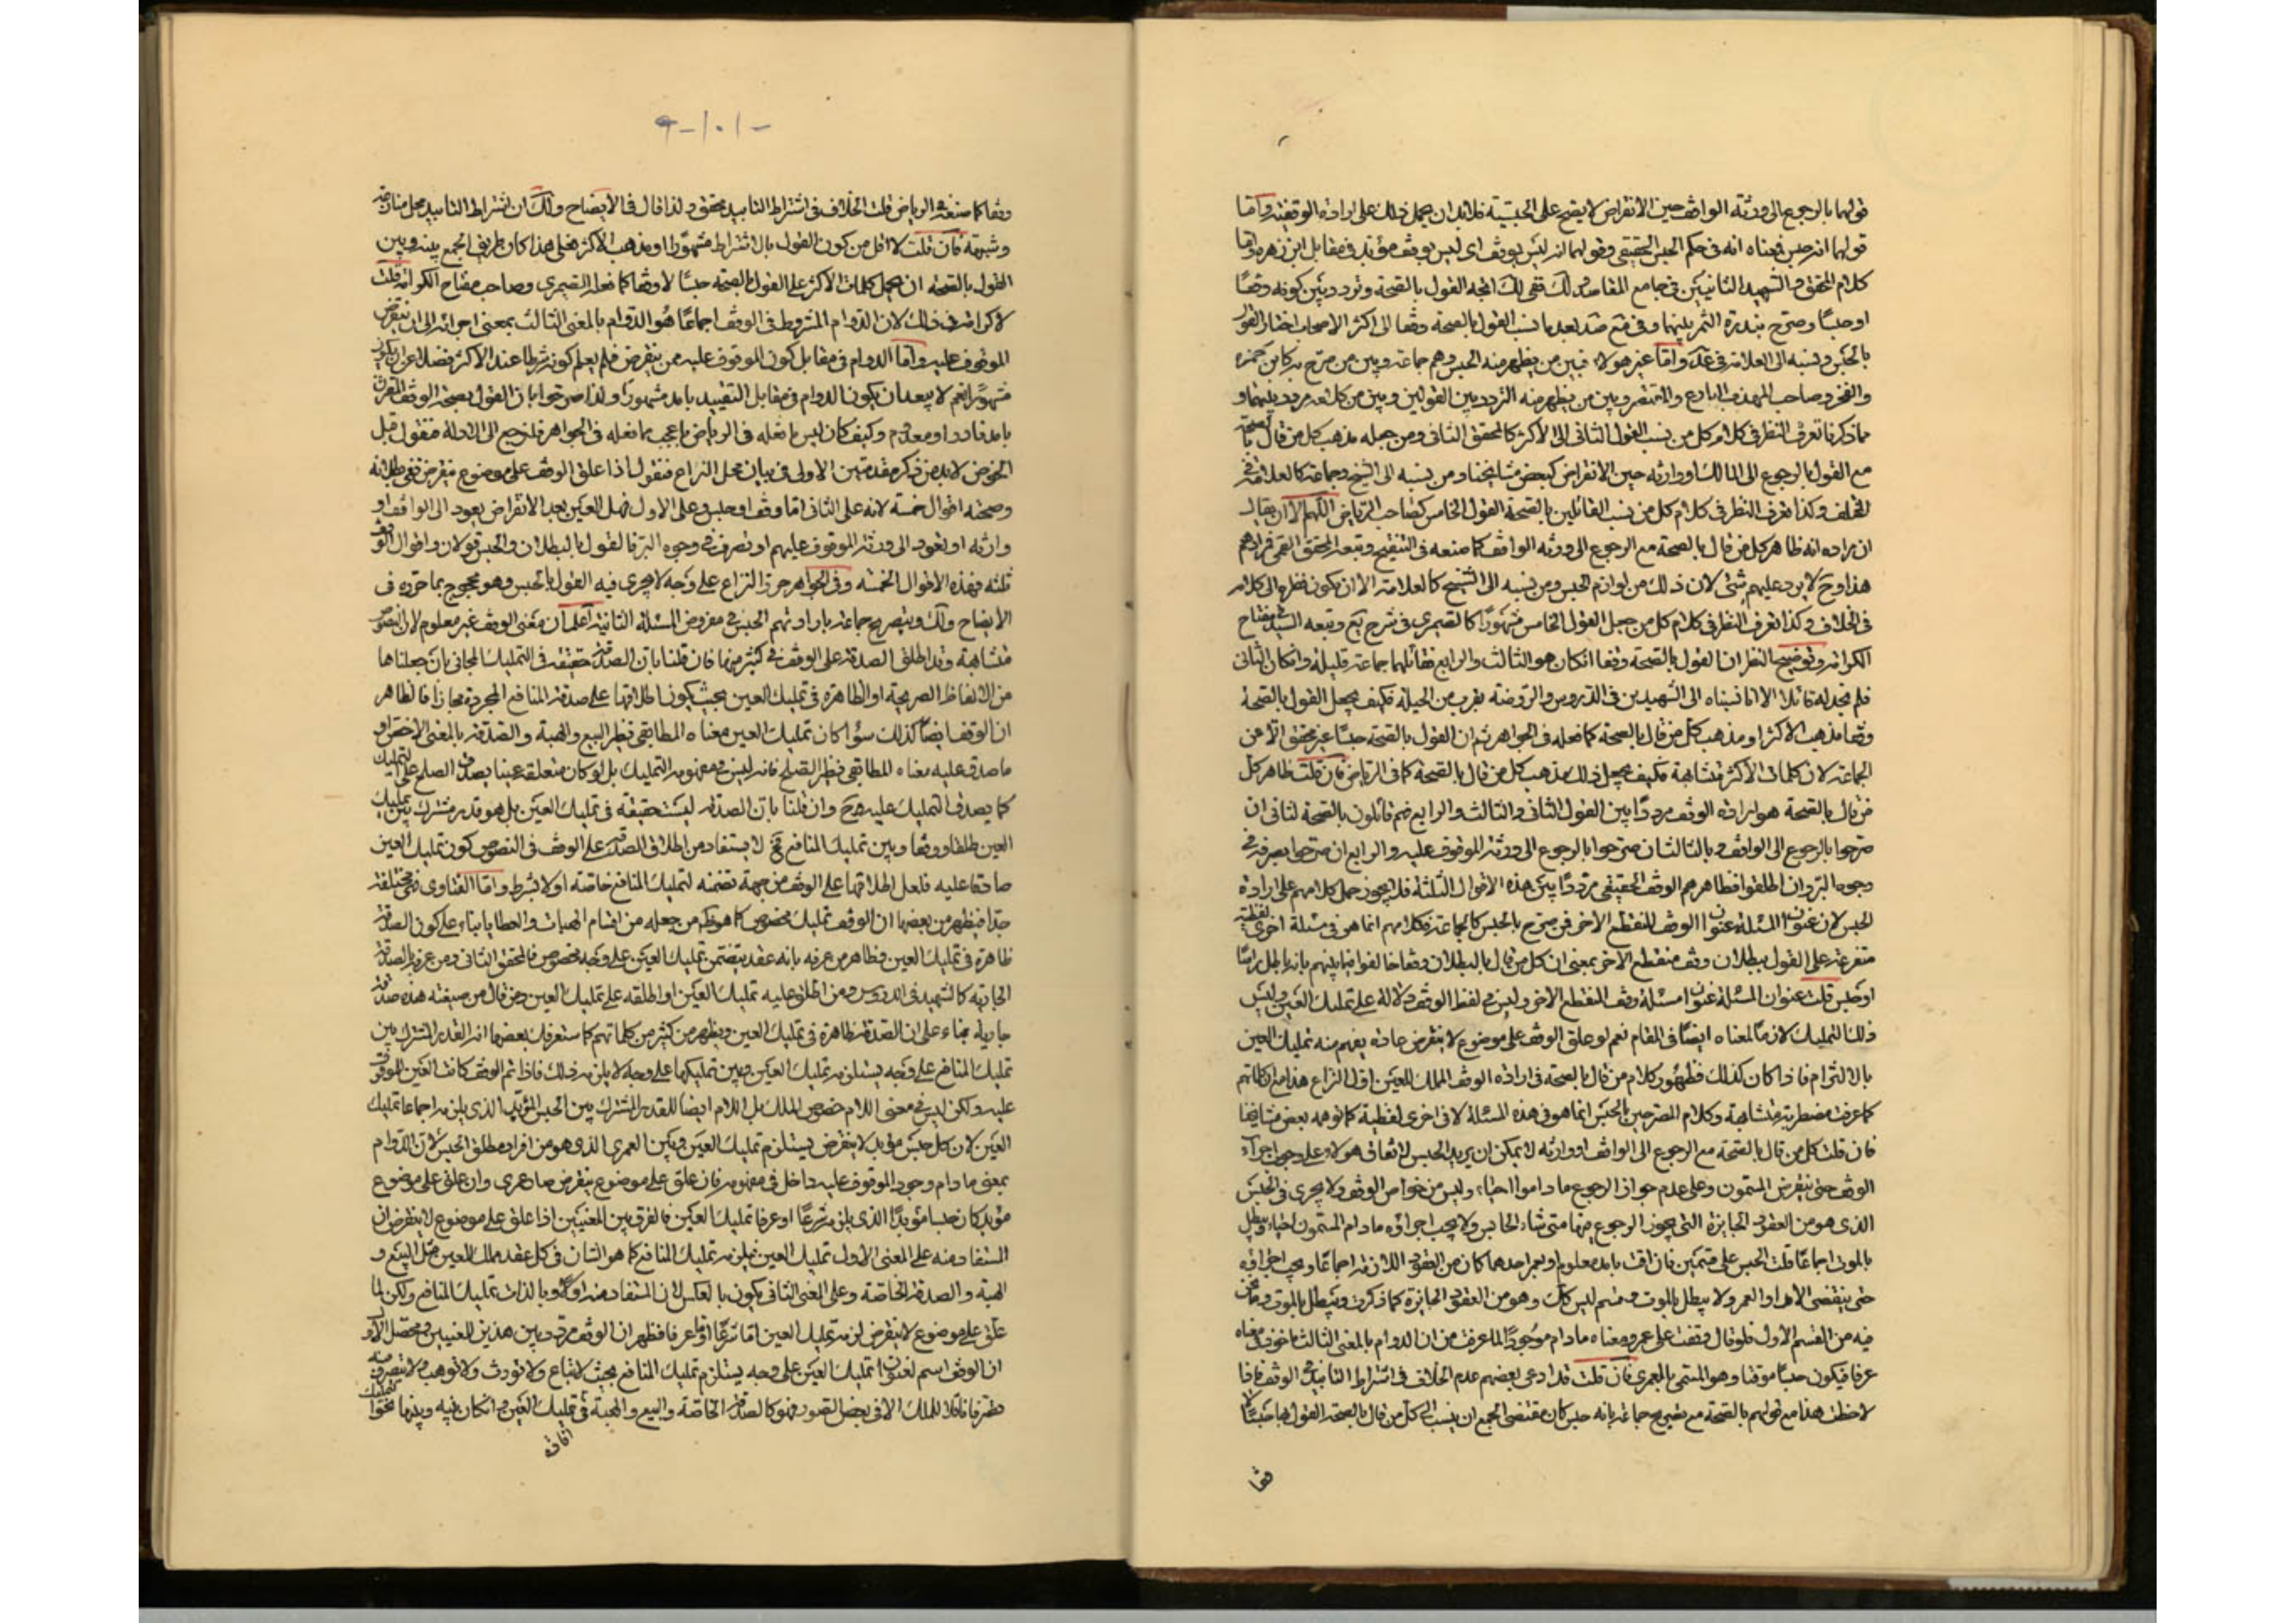 قولهما بالرجوع الى ورثة الواقف حين الانقراض لا يصح على الحبسية فلا بد ان يحمل ذلك على ارادة الوقفية واما
قولهما انه حبس فمعناه انه فى حكم الحبس الحقيقى وقولهما انه ليس بوقف اى ليس بوقف مؤبد فى مقابل ابن زهره واما
كلام المحقق و الشهيد الثانيين فى جامع المقاصد و لك ففى لك اتجه القول بالصحة وتردد بين كونه وقفا
او حبسا وصرح بندرة الثمر بينهما وفى ضة بعد ما نسب القول بالصحة وقفا الى اكثر الاصحاب اختار القول
بالحبس ونسبه الى العلامة فى عد واما غير هولاء فبين من يظهر منه الحبس وهم جماعة وبين من صرح به كابن حمزه
والفخر وصاحب المهذب البارع والمقتصر وبين من يظهر منه التردد بين القولين وبين من كلامه مردد بينهما و
مما ذكرنا تعرف النظر فى كلام كل من نسب القول الثانى الى الاكثر كالمحقق الثانى ومن جعله مذهب كل من قال بالصحة
مع القول بالرجوع الى المالك او وارثه حين الانقراض كبعض مشايخنا ومن نسبه الى الشيخ وجماعة كالعلامة فى
المختلف وكذا تعرف النظر فى كلام كل من نسب القائلين بالصحة القول الخامس كصاحب الرياض اللهم الا ان يقال
ان مراده انه ظاهر كل من قال بالصحة مع الرجوع الى ورثة الواقف كما صنعه فى التنقيح وتبعه المحقق القمى فمرادهم
هذا وح لا يرد عليهم شئ لان ذلك من لوازم الحبس ومن نسبه الى الشيخ كالعلامة الا ان يكون نظره الى كلامه
فى الخلاف وكذا تعرف النظر فى كلام كل من جعل القول الخامس مشهورا كالصيمرى فى شرح يع وتبعه السيد فى مفتاح
الكرامه وتوضيح النظر ان القول بالصحة وقفا ان كان هو الثالث والرابع فقائلهما جماعة قليلة وان كان الثانى
فلم نجد له قائلا الا انا نسبناه الى الشهيدين فى الدروس والروضة بضرب من الحيلة فكيف يجعل القول بالصحة
وقفا مذهب الاكثر او مذهب كل من قال بالصحة كما فعله فى الجواهر ثم ان القول بالصحة حبسا غير محقق الا من
الجماعة لان كلمات الاكثر متشابهة فكيف يجعل ذلك مذهب كل من قال بالصحة كما فى الرياض فان قلت ظاهر كل
من قال بالصحة هو ارادة الوقف مرددا بين القول الثانى والثالث والرابع فهم قائلون بالصحة لثانى ان
صرحوا بالرجوع الى الواقف وبالثالث ان صرحوا بالرجوع الى ورثة الموقوف عليه والرابع ان صرحوا بصرفه فى
وجوه البر وان اطلقوا فظاهرهم الوقف الحقيقى مرددا بين هذه الاقوال الثلثة فلا يجوز حمل كلامهم على ارادة
الحبس لان عنوان المسئلة عنوان الوقف المنقطع الاخر فمن صرح بالحبس كالجماعة فكلامهم انما هو فى مسئلة اخرى لفظية
متفرعة على القول ببطلان وقف منقطع الاخر بمعنى ان كل من قال بالبطلان وقفا خالفوا فيما بينهم بانه باطل راسا
او حبس قلت عنوان المسئلة عنوان مسئلة وقف المنقطع الاخر وليس فى لفظ الوقف دلالة على تمليك العين وليس
ذلك التمليك لازما لمعناه ايضا فى المقام نعم لو علق الوقف على موضوع لا ينقرض عادة يفهم منه تمليك العين
بالالتزام فاذا كان كذلك فظهور كلام من قال بالصحة فى ارادة الوقف المملك للعين اول النزاع هذا مع ان كلماتهم
كما عرفت مضطربة متشابهة وكلام المصرحين بالحبس انما هو فى هذه المسئلة لا فى اخرى لفظية كما توهمه بعض مشايخنا
فان قلت كل من قال بالصحة مع الرجوع الى الواقف او وارثه لا يمكن ان يريد الحبس لاتفاق هولاء على وجوب اجراء
الوقف حتى ينقرض المسمون وعلى عدم جواز الرجوع ما داموا احياء وليس من خواص الوقف ولا يجرى فى الحبس
الذى هو من العقود الجايزة التى يجوز الرجوع فيها متى شاء الحابس ولا يجب اجراؤه ما دام المسمون احياء ويبطل
بالموت اجماعا قلت الحبس على قسمين فان اقت بامد معلوم او بعمر احدهما كان من العقود اللازمة اجماعا ويجب اجراؤه
حتى ينقضى الامد او العمر ولا يبطل بالموت وقسم ليس كك وهو من العقود الجايزة كما ذكرت ويبطل بالموت وما نحن
فيه من القسم الاول فلو قال وقفت على عمرو معناه ما دام موجودا لما عرفت من ان الدوام بالمعنى الثالث ماخوذ فى معناه
عرفا فيكون حبسا موقتا وهو المسمى بالعمرى فان قلت قد ادعى بعضهم عدم الخلاف فى اشتراط التابيد فى الوقف فاذا
لاحظت هذا مع قولهم بالصحة مع تصريح جماعة بانه حبس كان مقتضى الجمع ان ينسب الى كل من قال بالصحة القول بها حبسا لا
وقفا
وقفا كما صنعه فى الرياض قلت الخلاف فى اشتراط التابيد محقق ولذا قال فى الايضاح ولك ان اشتراط التابيد محل منازعة
وشبهة فان قلت لا اقل من كون القول بالاشتراط مشهورا او مذهب الاكثر فعلى هذا كان طريق الجمع بينه وبين
القول بالصحة ان يحمل كلمات الاكثر على القول بالصحة حبسا لا وقفا كما فعله الصيمرى وصاحب مفتاح الكرامة قلت
لا كرامة فى ذلك لان الدوام المشروط فى الوقف اجماعا هو الدوام بالمعنى الثالث بمعنى اجرائه الى ان ينقرض
الموقوف عليه واما الدوام فى مقابل كون الموقوف عليه ممن ينقرض فلم يعلم كونه شرطا عند الاكثر فضلا عن ان يكون
مشهورا نعم لا يبعد ان يكون الدوام فى مقابل التقييد بامد مشهورا ولذا صرحوا بان القول بصحة الوقف المقرون
بامد نادر او معدوم وكيف كان ليس ما فعله فى الرياض باعجب مما فعله فى الجواهر فلنرجع الى الادلة فنقول قبل
الخوض لا بد من ذكر مقدمتين الاولى فى بيان محل النزاع فنقول اذا علق الوقف على موضوع ينقرض ففى بطلانه
وصحته اقوال خمسة لانه على الثانى اما وقف او حبس وعلى الاول فهل العين بعد الانقراض يعود الى الواقف او
وارثه او تعود الى ورثة الموقوف عليهم او تصرف فى وجوه البر فالقول بالبطلان والحبس قولان واقوال الوقف
ثلثه فهذه الاقوال الخمسة وفى الجواهر حرر النزاع على وجه لا يجرى فيه القول بالحبس وهو محجوج بما حرره فى
الايضاح ولك وبتصريح جماعة بارادتهم الحبس فى مفروض المسئلة الثانية اعلم ان معنى الوقف غير معلوم لان النصوص
متشابهة وقد اطلق الصدقة على الوقف فى كثير منها فان قلنا بان الصدقة حقيقة فى التمليك المجانى بان جعلناها
من الالفاظ الصريحة او الظاهرة فى تمليك العين بحيث يكون اطلاقها على صدقة المنافع المجردة مجازا فالظاهر
ان الوقف ايضا كذلك سواء كان تمليك العين معناه المطابقى نظير البيع والهبة والصدقة بالمعنى الاخص او
ما صدق عليه معناه المطابقى نظير الصلح فانه ليس مفهومه التمليك بل لو كان متعلقه عينا يصدق الصلح على التمليك
كما يصدق التمليك عليه ح وان قلنا بان الصدقة ليست حقيقة فى تمليك العين بل هو قدر مشترك بين تمليك
العين طلقا و وقفا وبين تمليك المنافع فح لا يستفاد من اطلاق الصدقة على الوقف فى النصوص كون تمليك العين
صادقا عليه فلعل اطلاقها على الوقف من جهة تضمنه لتمليك المنافع خاصة او لا بشرط واما الفتاوى فهى مختلفة
جدا فيظهر من بعضها ان الوقف تمليك مخصوص كما هو ظاهر من جعله من اقسام الهبات والعطايا بناء على كون الصدقة
ظاهرة فى تمليك العين وظاهر من عرفه بانه عقد يتضمن تمليك العين على وجه مخصوص كالمحقق الثانى ومن عرفه بالصدقة
الجارية كالشهيد فى الدروس ومن اطلق عليه تمليك العين او اطلقه على تمليك العين ومن قال من صيغته هذه صدقة
جارية بناء على ان الصدقة ظاهرة فى تمليك العين ويظهر من كثير من كلماتهم كما ستعرف بعضها انه القدر المشترك بين
تمليك المنافع على وجه يستلزم تمليك العين وبين تمليكها على وجه لا يلزمه ذلك فاذا تم الوقف كانت العين للموقوف
عليه ولكن ليس معنى اللام خصوص الملك بل اللام ايضا للقدر المشترك بين الحبس المؤبد الذى يلزمه اجماعا تمليك
العين لان كل حبس مؤبد لا ينقرض يستلزم تمليك العين وبين العمرى الذى هو من افراد مطلق الحبس لان الدوام
بمعنى ما دام وجود الموقوف عليه داخل فى مفهومه فان علق على موضوع ينقرض صار عمرى وان علق على موضوع
مؤبد كان حبسا مؤبدا الذى يلزمه شرعا او عرفا تمليك العين فالفرق بين المعنيين اذا علق على موضوع لا ينقرض ان
المستفاد منه على المعنى الاول تمليك العين فيلزمه تمليك المنافع كما هو الشان فى كل عقد مملك للعين مثل البيع و
الهبة والصدقة الخاصة وعلى المعنى الثانى يكون بالعكس لان المستفاد منه اولا وبالذات تمليك المنافع ولكن لما
علق على موضوع لا ينقرض لزمه تمليك العين اما شرعا او عرفا فظهر ان الوقف مردد بين هذين المعنيين ومحصل الاول
ان الوقف اسم لعنوان تمليك العين على وجه يستلزم تمليك المنافع بحيث لا تباع ولا تورث ولا توهب ولا يتصرف فيه
تصرفا ناقلا للملك الا فى بعض الصور فهو كالصدقة الخاصة والبيع والهبة فى تمليك العين وان كان بينه وبينها
افادة